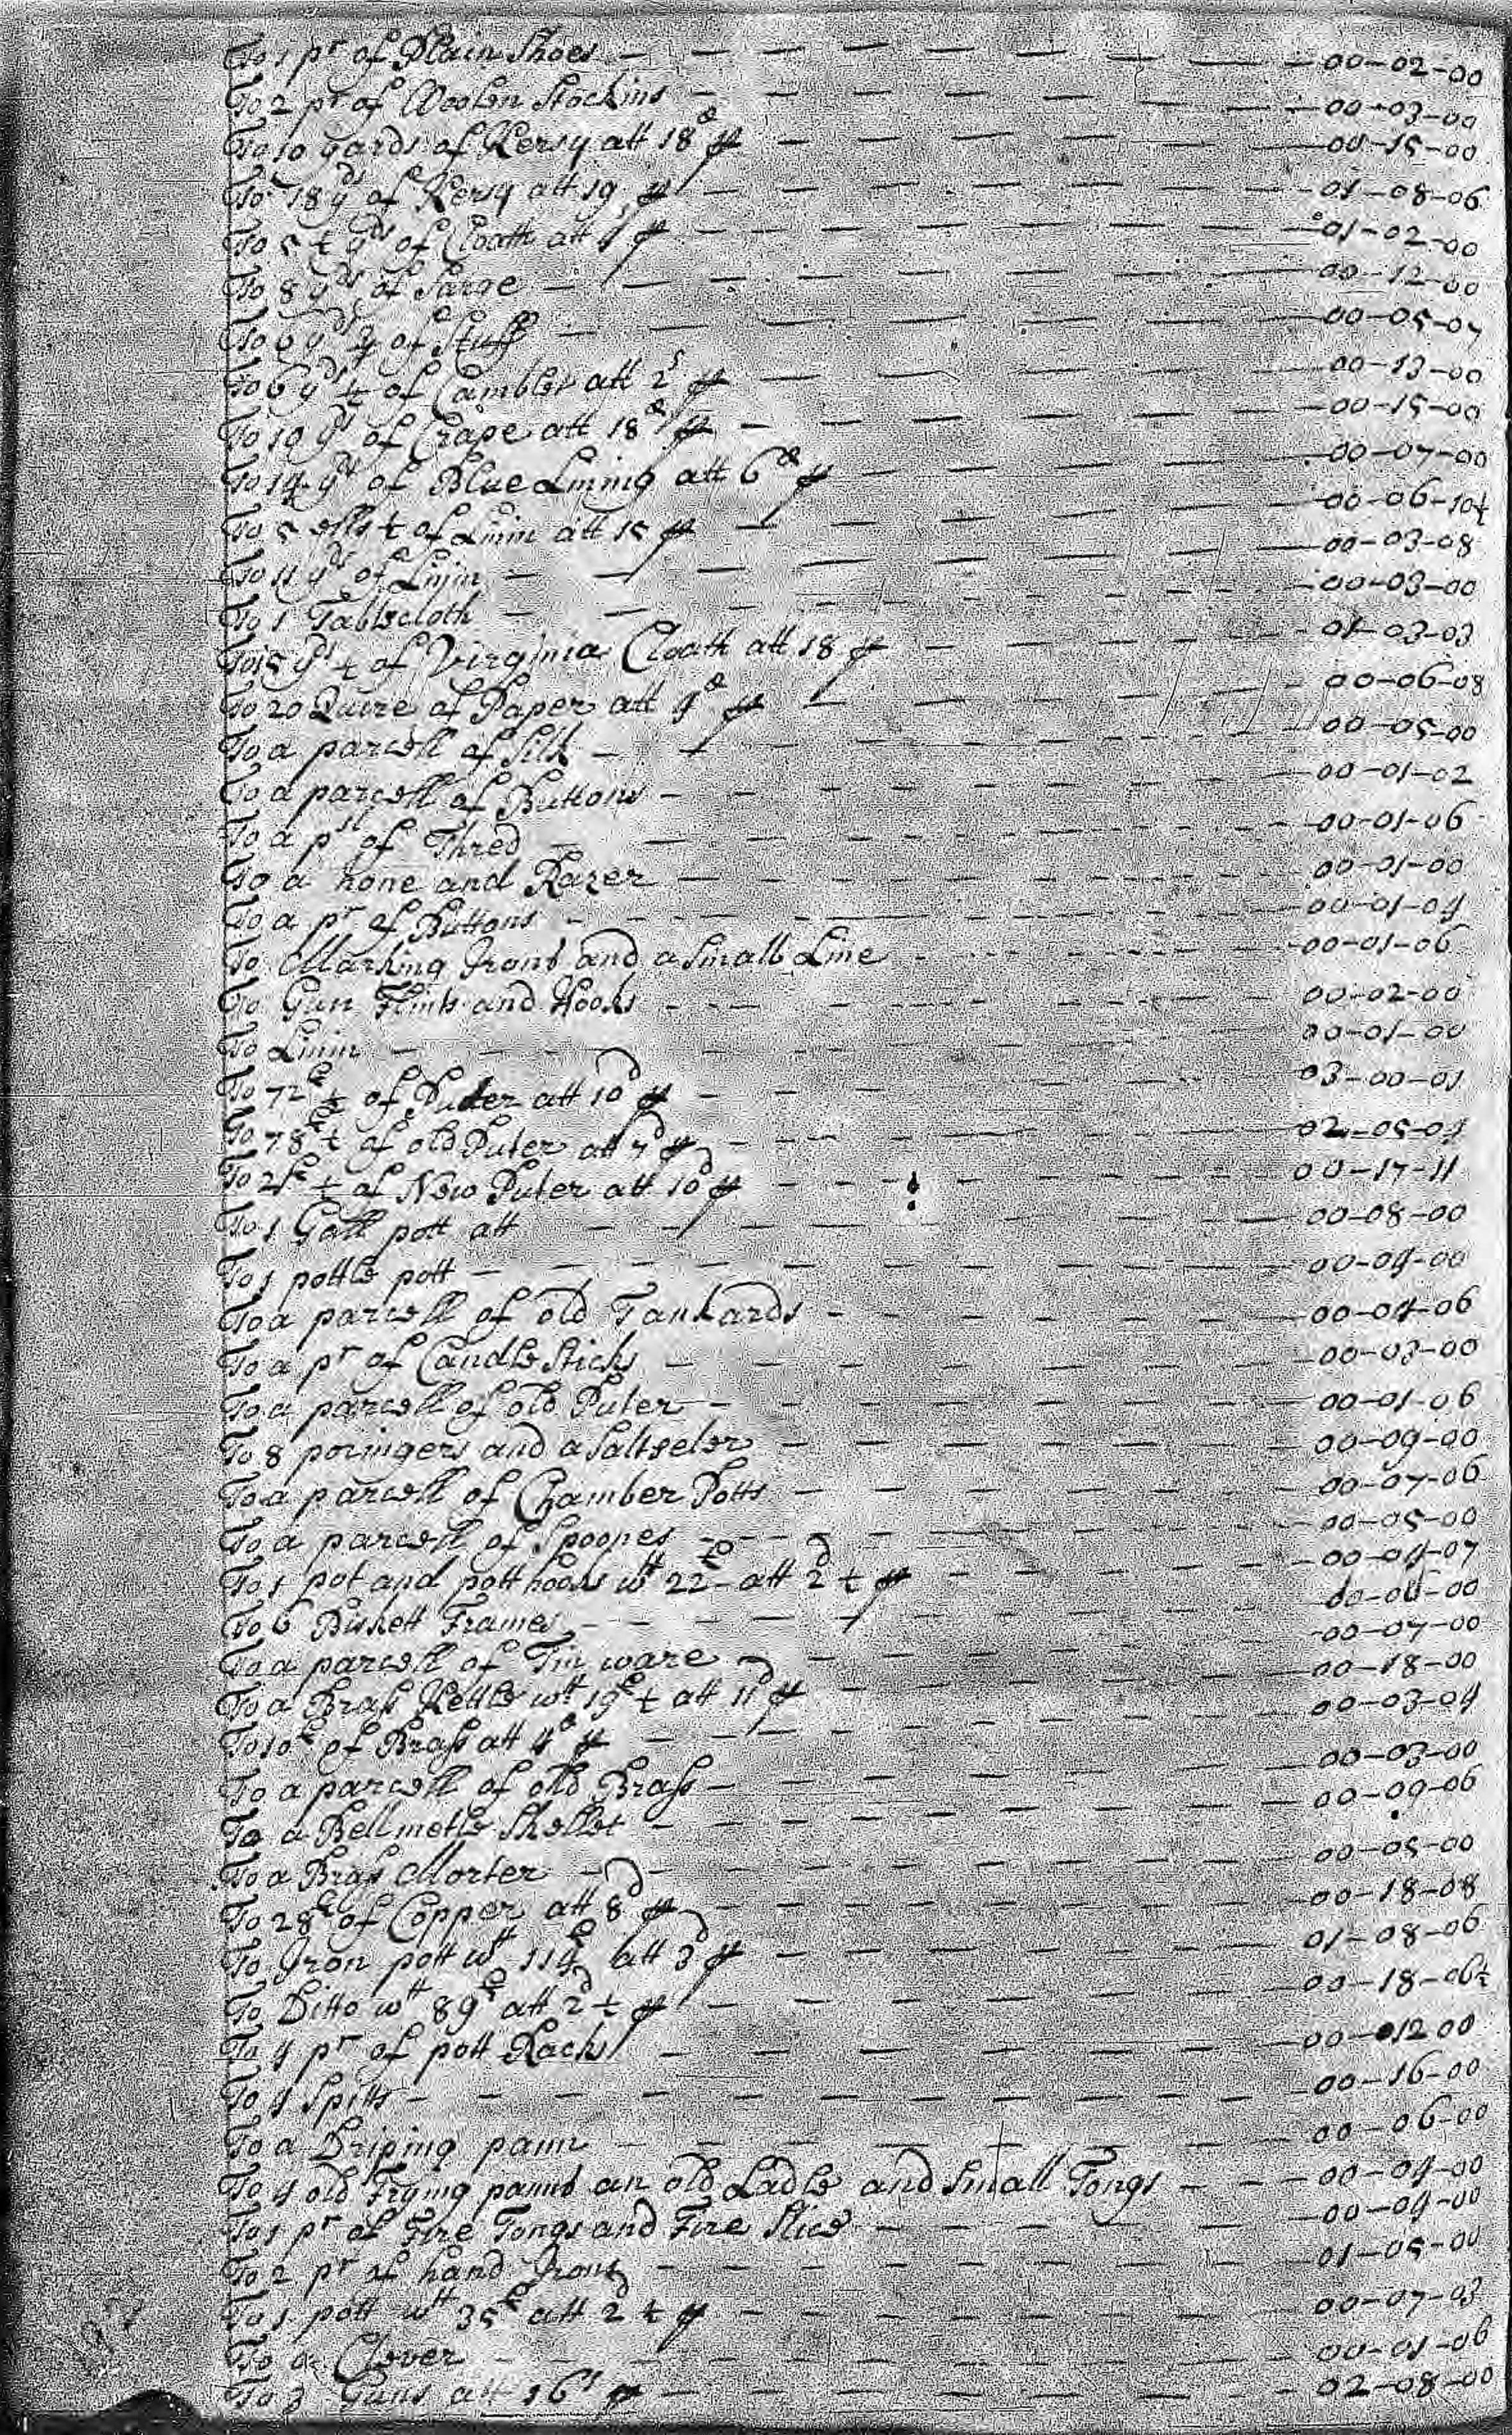 To 1 pr of Plain Shoes — 00-02-00
To 2 pr of Woolen Stockins — 00-03-00
To 10 yards of Kersy att 18d p — 00-15-00
To 18 yds of Kersy att 19 p — 01-08-06
To 5 ½ yds of Cloath att 4s p — 01-02-00
To 8 yds of Sarge — 00-12-00
To 6 yds of Stuff — 00-05-07
To 6 yds ½ of Camblet att 2s p — 00-13-00
To 10 yds of Crape att 18d p — 00-15-00
To 14 yds of Blue Lining att 6d p — 00-07-00
To 5 ells ½ of Linin att 15 p — 00-06-10½
To 11 yds of Linin — 00-03-08
To 1 Tablecloth — 00-03-00
To 15 yds ½ of Virginia Cloath att 18 p — 01-03-03
To 20 Quire of Paper att 4d p — 00-06-08
To a parcell of Silk — 00-05-00
To a parcell of Buttons — 00-01-02
To a pll of Thred — 00-01-06
To a hone and Razer — 00-01-00
To a pr of Buttons — 00-01-04
To Marking Irons and a Small Line — 00-01-06
To Gun Flints and Hooks — 00-02-00
To Linin — 00-01-00
To 72l ½ of Puter att 10d p — 03-00-01
To 78l ½ of old Puter att 7d p — 02-05-04
To 21l ½ of New Puter att 10d p — 00-17-11
To 1 Gall pott att — 00-08-00
To 1 pottle pott — 00-04-00
To a parcell of old Tankards — 00-04-06
To a pr of Candle Sticks — 00-03-00
To a parcell of old Puter — 00-01-06
To 8 poringers and a Saltseler — 00-09-00
To a parcell of Chamber Potts — 00-07-06
To a parcell of Spoones — 00-05-00
To 1 pot and pott hooks wtt 22l att 2d ½ p — 00-04-07
To 6 Biskett Frames — 00-06-00
To a parcell of Tin ware — 00-07-00
To a Brass Kettle wtt 19l ½ att 11d p — 00-18-00
To 10l of Brass att 4d p — 00-03-04
To a parcell of old Brass — 00-03-00
To a Bellmettle Skellet — 00-09-06
To a Brass Morter — 00-05-00
To 28l of Copper att 8d p — 00-18-08
To Iron pott wtt 114l att 3d p — 01-08-06
To Ditto wtt 89l att 2d ½ p — 00-18-06½
To 4 pr of pott Racks — 00-12 00
To 4 Spitts — 00-16-00
To a Driping pann — 00-06-00
To 4 old Frying panns an old Ladle and Small Tongs — 00-04-00
To 1 pr of Fire Tongs and Fire Slice — 00-04-00
To 2 pr of hand Irons — 01-05-00
To 1 pott wtt 35l att 2d ½ p — 00-07-03
To a Clever — 00-01-06
To 3 Guns att 16s p — 02-08-00